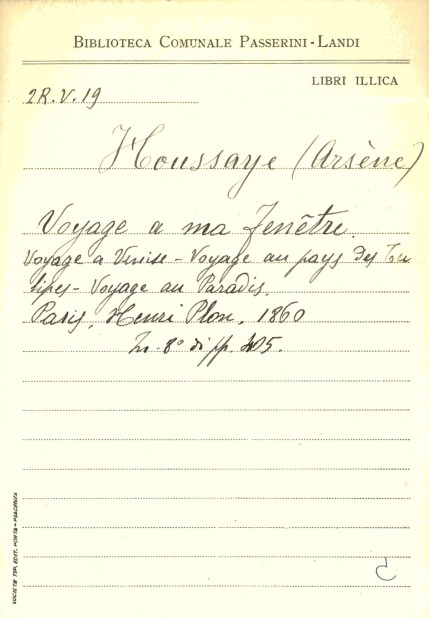 BIBLIOTECA COMUNALE PASSERINI-LANDI
LIBRI ILLICA
2R.V.19
Houssaye (Arsène)
Voyage a ma fenêtre.
Voyage a Venise - Voyage au pays des Tu
lipes - Voyage au Paradis.
Paris, Henri Plon, 1860
In 8° di pp. 405.
SOCIETÀ TIP. EDIT. PORTA - PIACENZA